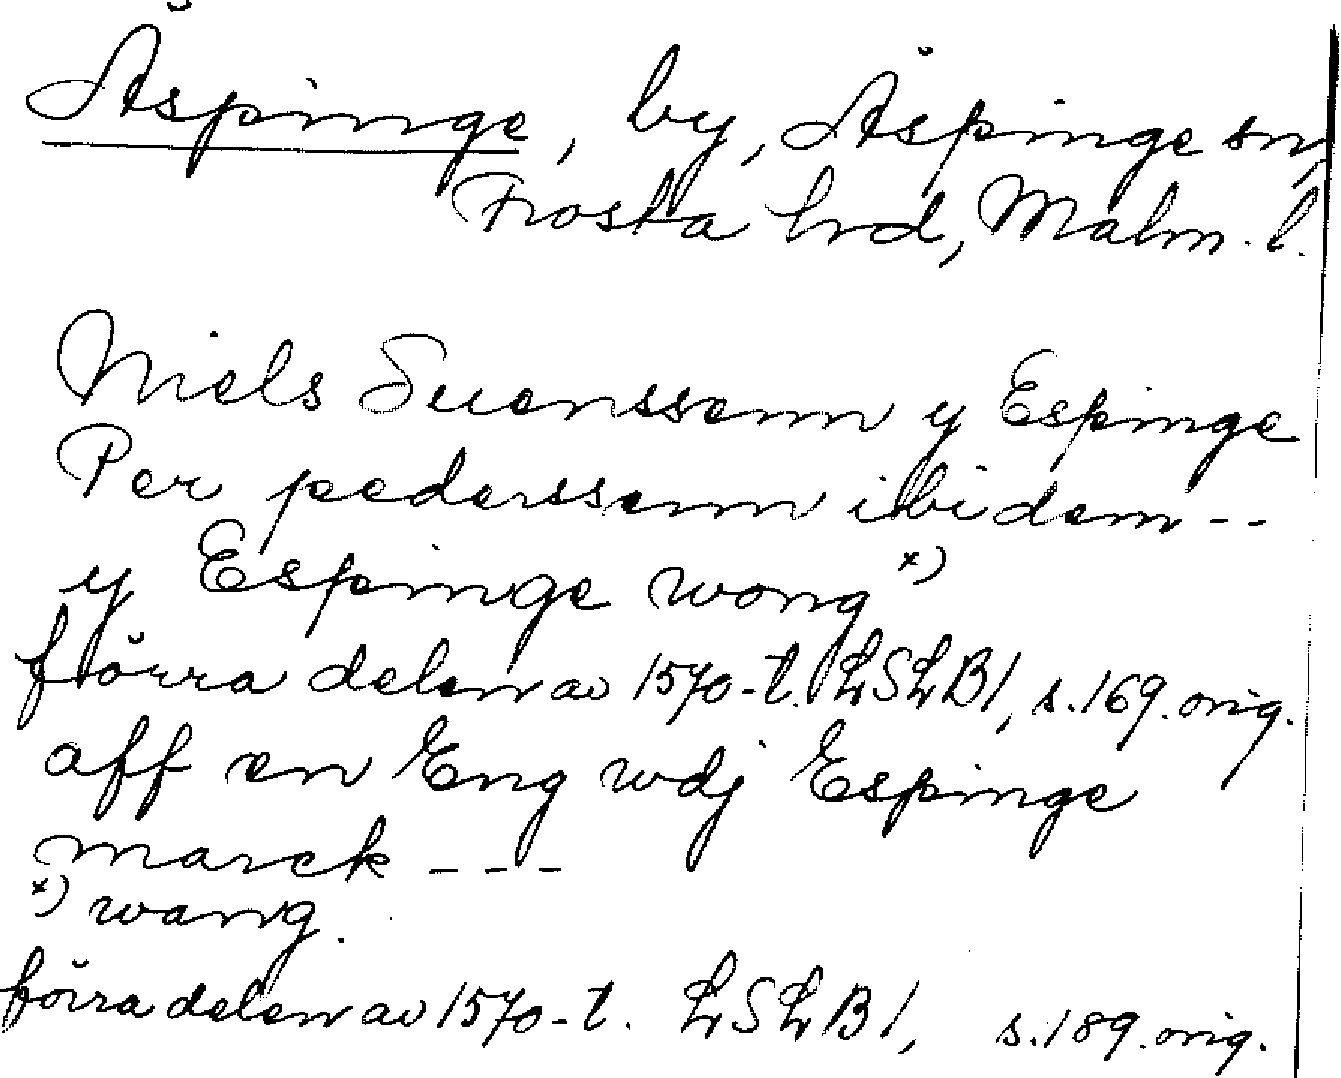 Äspinge, by, Äspinge sn,
Frosta hrd, Malm. l.
Niels Suenssenn y Espinge
Per pederssenn ibidem --
y Espinge wong x)
förra delen av 1570-t. LSLB1, s. 169. orig.
aff en Eng wdj Espinge
marck ---
x) wang.
förra delen av 1570-t. LSLB1, s. 189. orig.